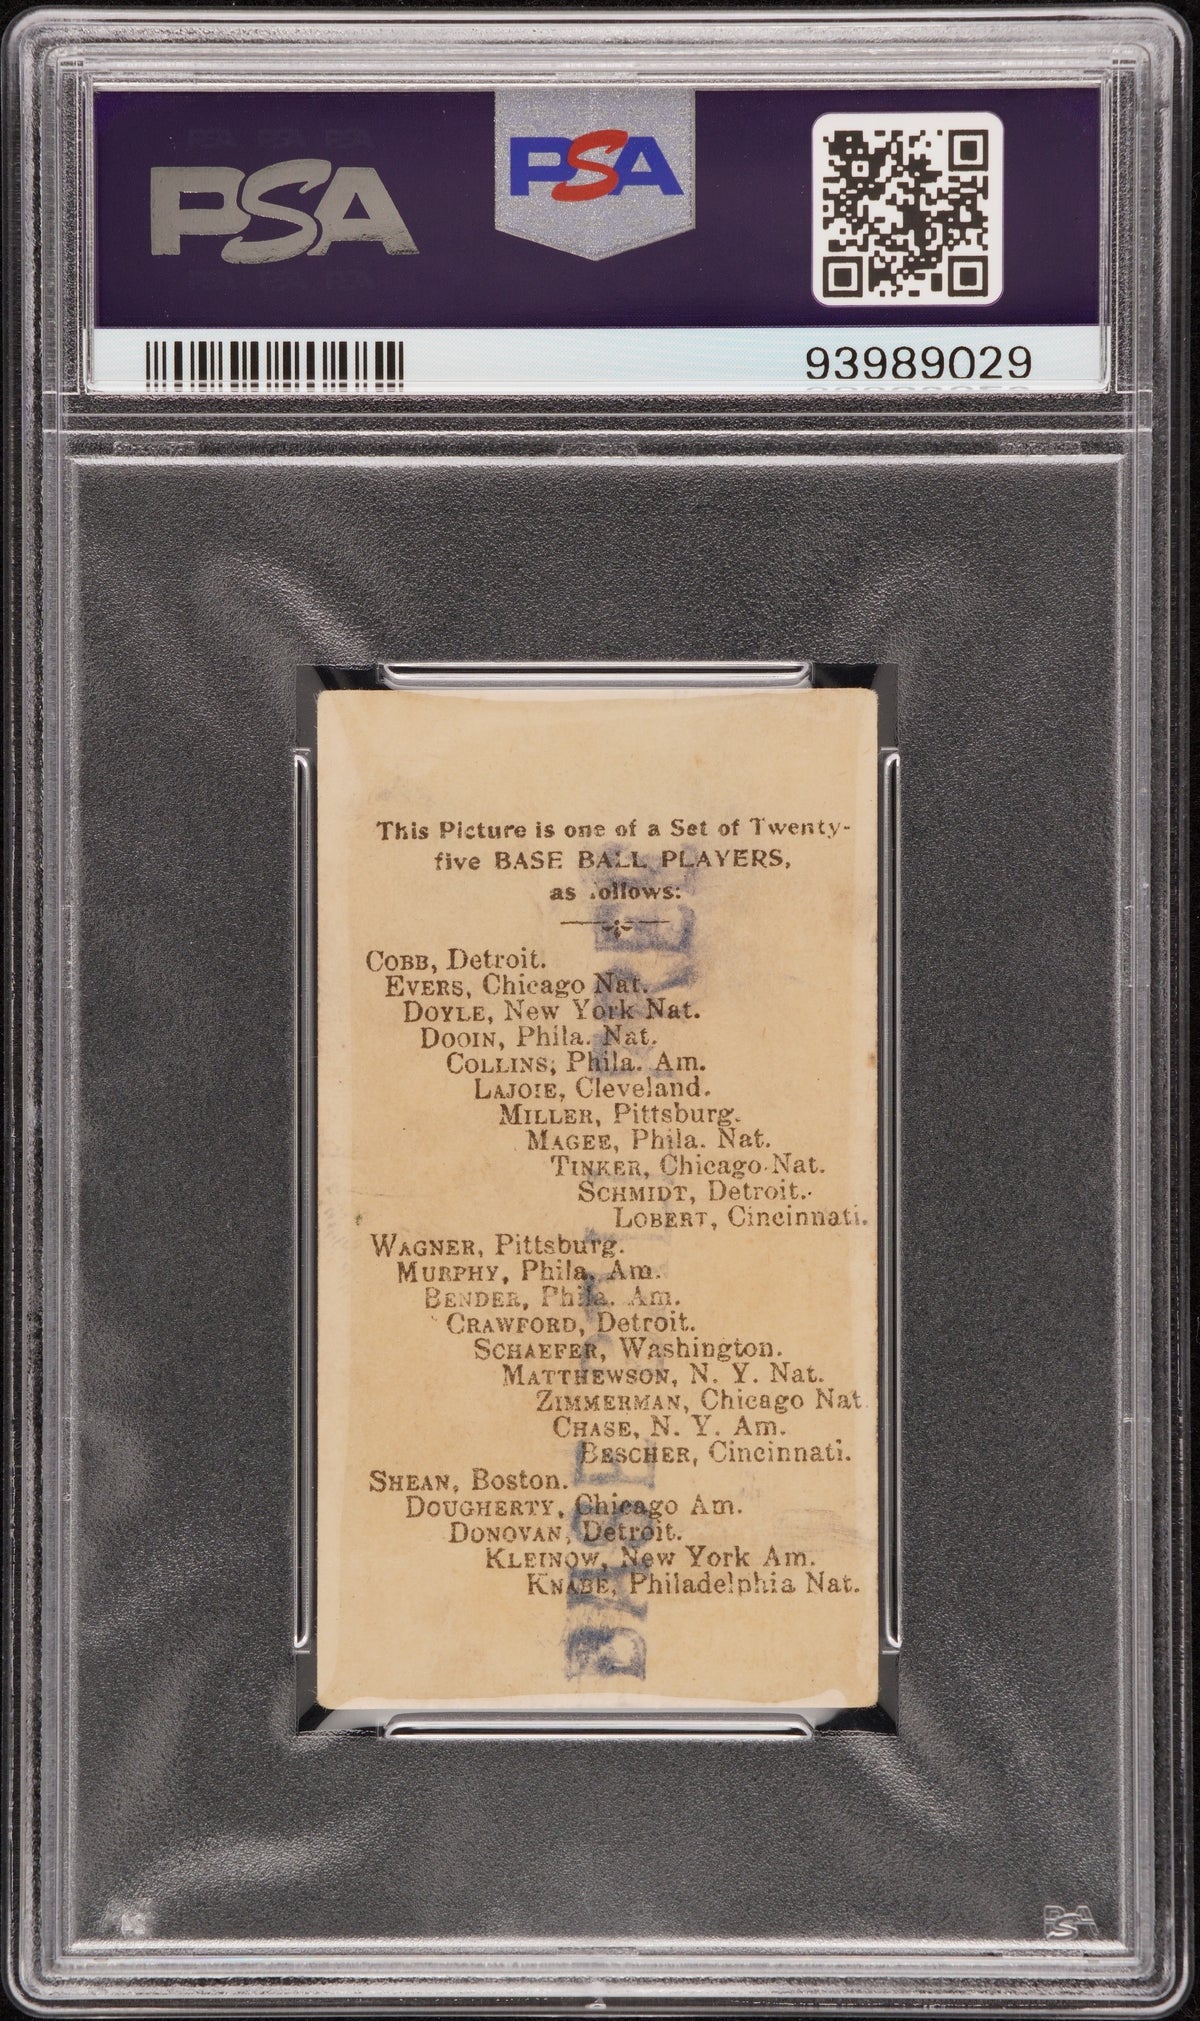 PSA
PSA
93989029
This Picture is one of a Set of Twenty-
five BASE BALL PLAYERS,
as .ollows:
COBB, Detroit.
EVERS, Chicago Nat.
DOYLE, New York Nat.
DOOIN, Phila. Nat.
COLLINS, Phila. Am.
LAJOIE, Cleveland.
MILLER, Pittsburg.
MAGEE, Phila. Nat.
TINKER, Chicago Nat.
SCHMIDT, Detroit.
LOBERT, Cincinnati.
WAGNER, Pittsburg.
MURPHY, Phila. Am.
BENDER, Phila. Am.
CRAWFORD, Detroit.
SCHAEFER, Washington.
MATTHEWSON, N. Y. Nat.
ZIMMERMAN, Chicago Nat.
CHASE, N. Y. Am.
BESCHER, Cincinnati.
SHEAN, Boston.
DOUGHERTY, Chicago Am.
DONOVAN, Detroit.
KLEINOW, New York Am.
KNABE, Philadelphia Nat.
PSA